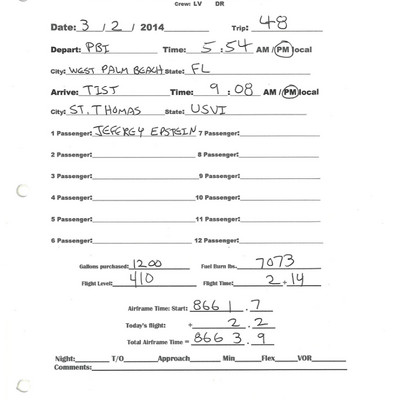 Crew: LV DR
Date: 3 / 2 / 2014 Trip: 48
Depart: PBI Time: 5:54 AM / PM local
City: WEST PALM BEACH State: FL
Arrive: TIST Time: 9:08 AM / PM local
City: ST. THOMAS State: USVI
1 Passenger: JEFFREY EPSTEIN 7 Passenger:
2 Passenger: 8 Passenger:
3 Passenger: 9 Passenger:
4 Passenger: 10 Passenger:
5 Passenger: 11 Passenger:
6 Passenger: 12 Passenger:
Gallons purchased: 1200 Fuel Burn lbs. 7073
Flight Level: 410 Flight Time: 2+14
Airframe Time: Start: 8661.7
Today's flight: + 2.2
Total Airframe Time = 8663.9
Night: T/O Approach Min Flex VOR
Comments: